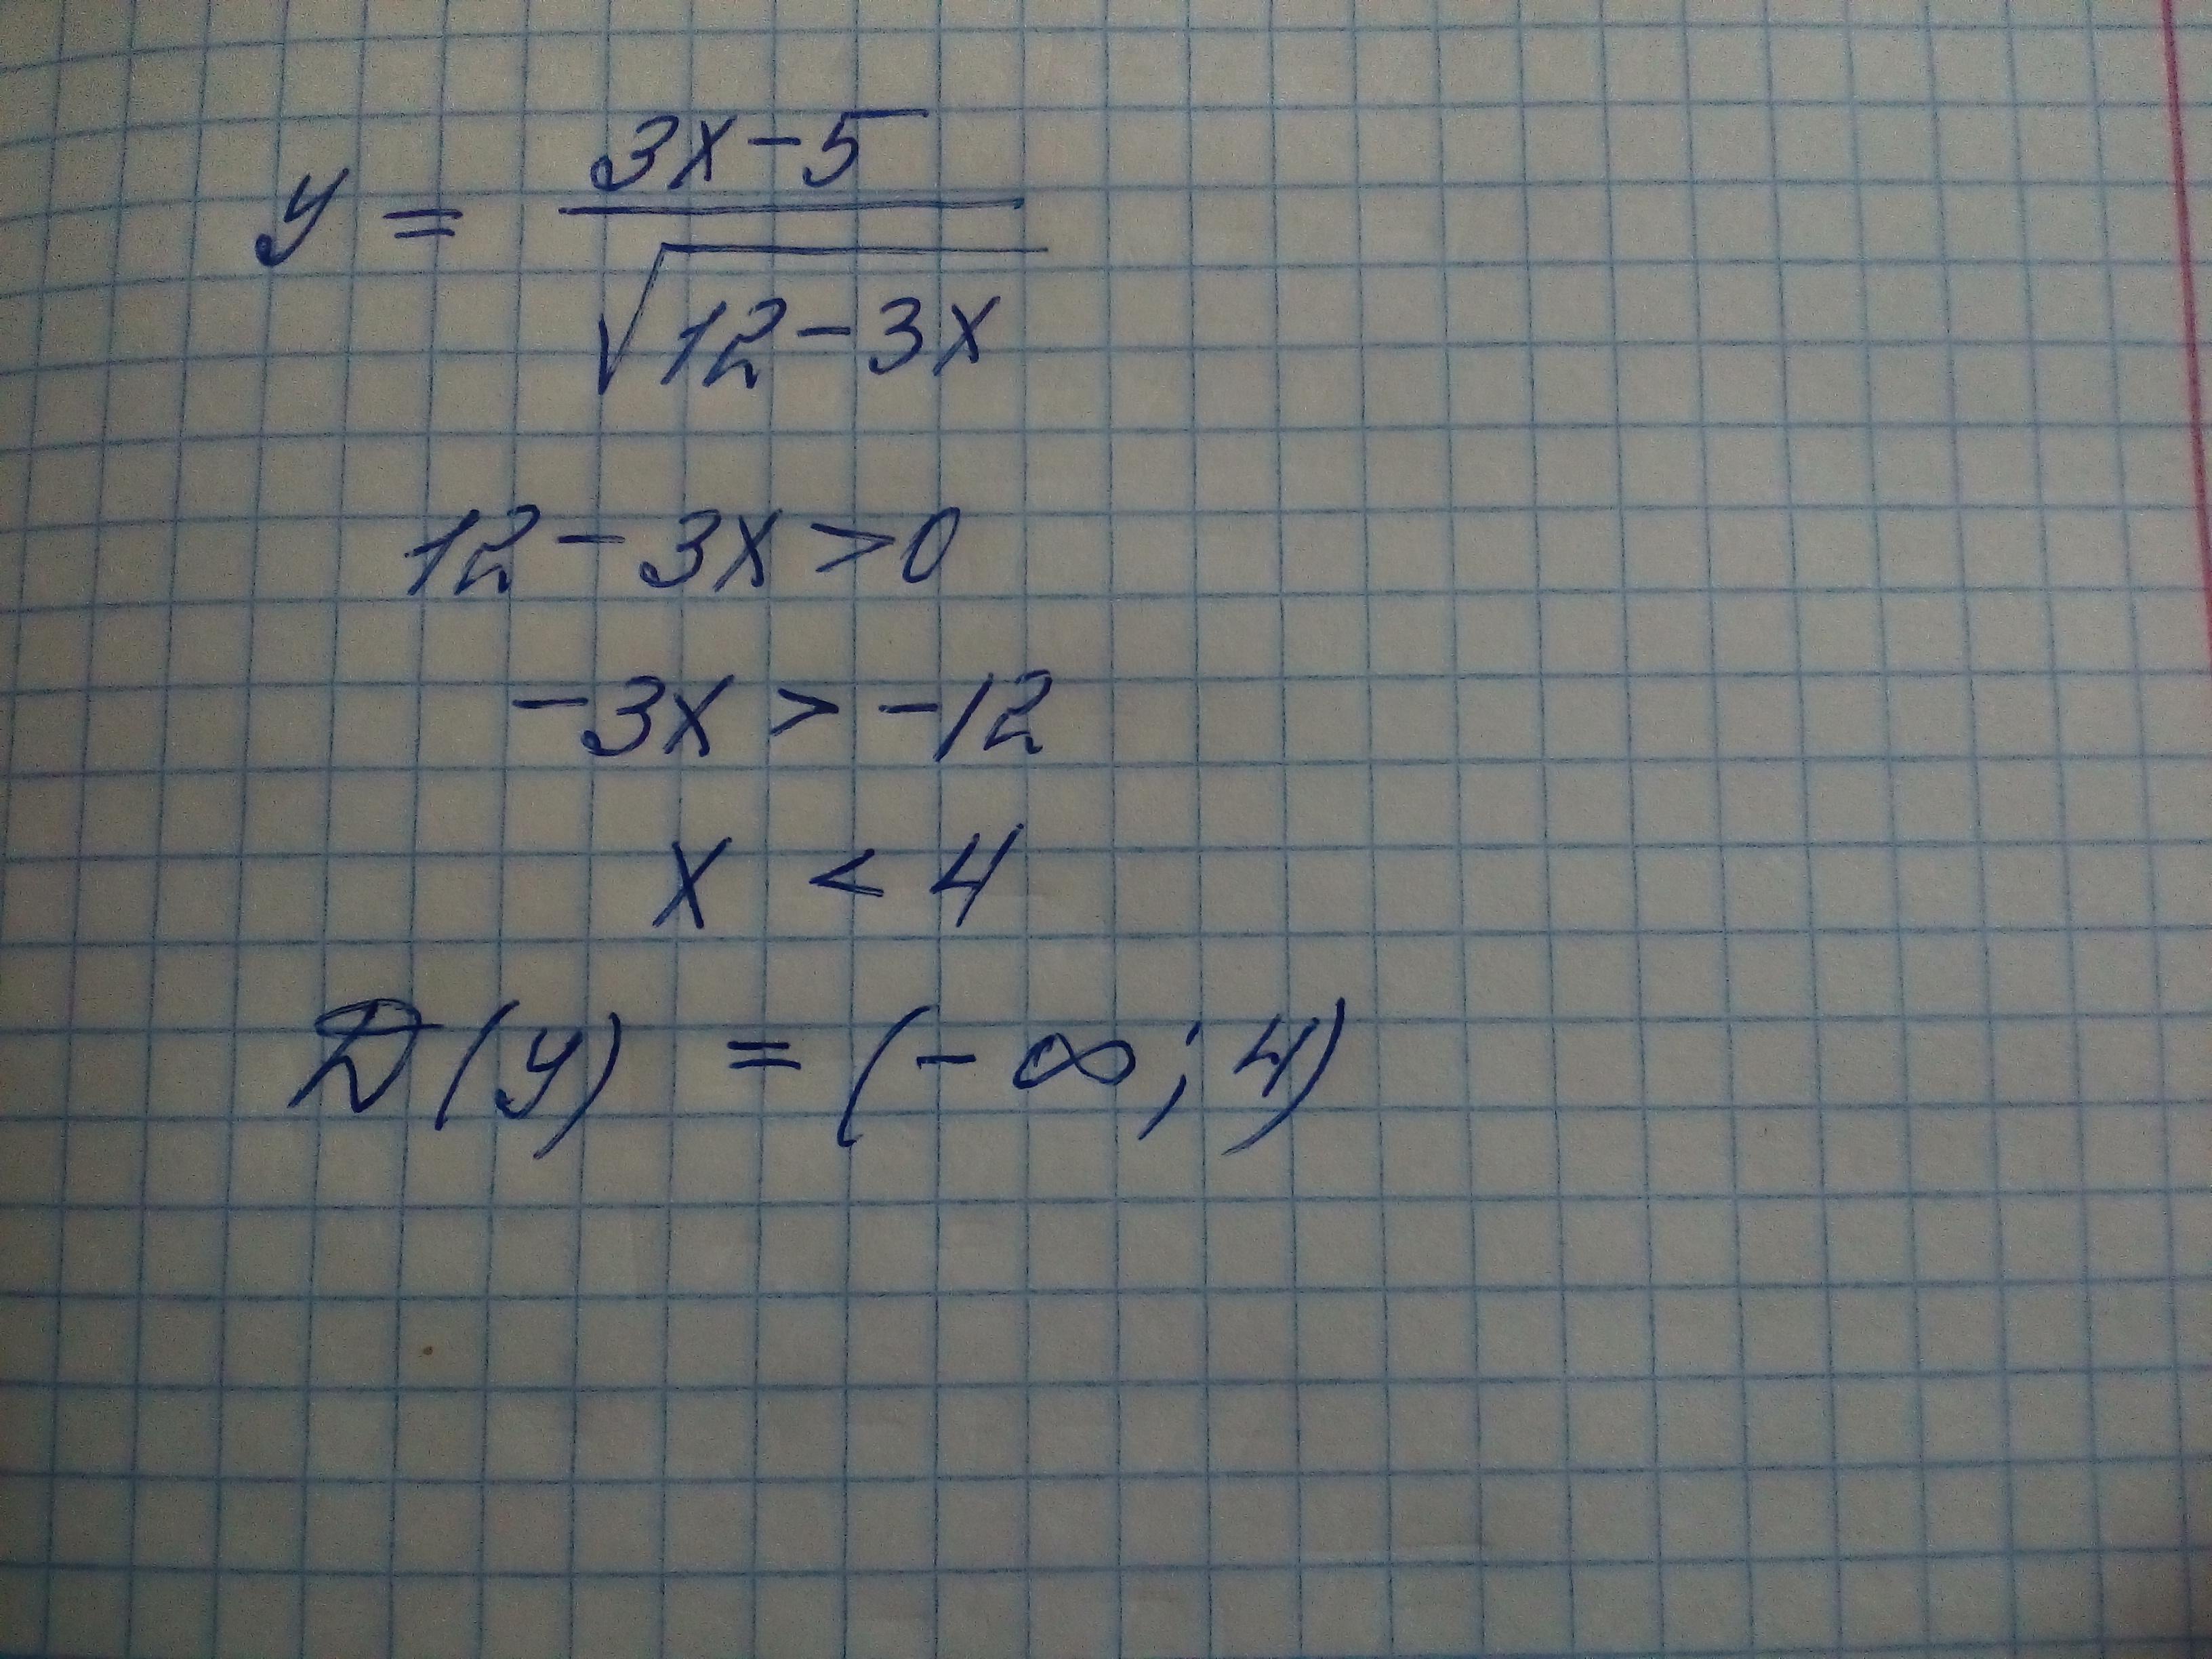 y = (3x-5)/√(12-3x)
12-3x>0
-3x > -12
x < 4
D(y) = (-∞; 4)